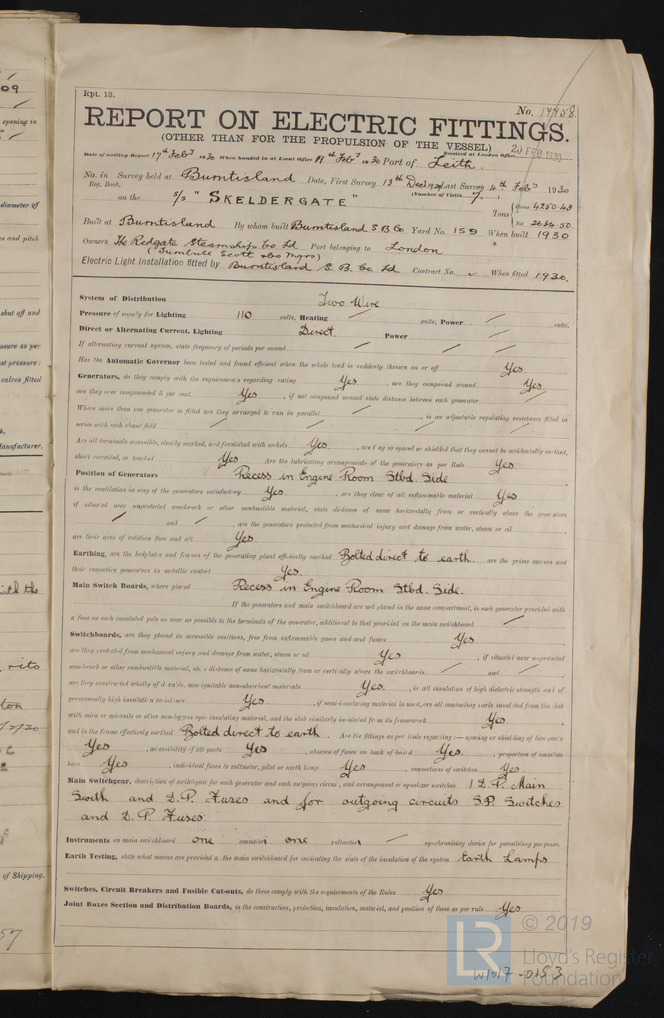 09
opening in
diameter of
es and pitch
shut off and
essure as per
st pressure:
valves fitted
Manufacturer.
with the
of Shipping.
57
Rpt. 13.
No. 17758
REPORT ON ELECTRIC FITTINGS.
(OTHER THAN FOR THE PROPULSION OF THE VESSEL)
Date of writing Report 17th Feby 1930 When handed in at Local Office 19th Feby 1930 Port of Leith. Received at London Office 20 FEB 1930
No. in Survey held at Burntisland Date, First Survey 13th Decr 1929 Last Survey 4th Feby 1930
Reg. Book. (Number of Visits 7)
on the S/S "SKELDERGATE" Tons { Gross 4250.43
Net 2634.50
Built at Burntisland By whom built Burntisland S.B. Co Yard No. 159 When built 1930
Owners The Redgate Steamships Co Ld Port belonging to London
(Turnbull Scott & Co Mgrs)
Electric Light Installation fitted by Burntisland S. B. Co. Ld Contract No. ✓ When fitted 1930.
System of Distribution Two Wire
Pressure of supply for Lighting 110 volts, Heating / volts, Power / volts.
Direct or Alternating Current, Lighting Direct. Power /
If alternating current system, state frequency of periods per second / / /
Has the Automatic Governor been tested and found efficient when the whole load is suddenly thrown on or off Yes
Generators, do they comply with the requirements regarding rating Yes, are they compound wound Yes
are they over compounded 5 per cent. Yes, if not compound wound state distance between each generator /
Where more than one generator is fitted are they arranged to run in parallel /, is an adjustable regulating resistance fitted in
series with each shunt field / / /
Are all terminals accessible, clearly marked, and furnished with sockets Yes, are they so spaced or shielded that they cannot be accidentally earthed,
short circuited, or touched Yes Are the lubricating arrangements of the generators as per Rule Yes
Position of Generators Recess in Engine Room Stbd. Side
is the ventilation in way of the generators satisfactory Yes, are they clear of all inflammable material Yes
if situated near unprotected woodwork or other combustible material, state distance of same horizontally from or vertically above the generators
/ and /, are the generators protected from mechanical injury and damage from water, steam or oil
are their axes of rotation fore and aft Yes.
Earthing, are the bedplates and frames of the generating plant efficiently earthed Bolted direct to earth. are the prime movers and
their respective generators in metallic contact Yes.
Main Switch Boards, where placed Recess in Engine Room Stbd. Side.
If the generators and main switchboard are not placed in the same compartment, is each generator provided with
a fuse on each insulated pole as near as possible to the terminals of the generator, additional to that provided on the main switchboard /
Switchboards, are they placed in accessible positions, free from inflammable gases and acid fumes Yes
are they protected from mechanical injury and damage from water, steam or oil Yes, if situated near unprotected
woodwork or other combustible material, state distance of same horizontally from or vertically above the switchboards / and /
are they constructed wholly of durable, non-ignitable non-absorbent materials Yes., is all insulation of high dielectric strength and of
permanently high insulation resistance Yes, if semi-insulating material is used, are all conducting parts insulated from the slab
with mica or micanite or other non-hygroscopic insulating material, and the slab similarly insulated from its framework Yes
and is the frame effectively earthed Bolted direct to earth. Are the fittings as per Rule regarding:— spacing or shielding of live parts
Yes, accessibility of all parts Yes, absence of fuses on back of board Yes., proportion of omnibus
bars Yes, individual fuses to voltmeter, pilot or earth lamp Yes, connections of switches Yes
Main Switchgear, description of switchgear for each generator and each outgoing circuit, and arrangement or equalizer switches 1 D.P. Main
Swith and D.P. Fuses and for outgoing circuits S.P. Switches
and D.P. Fuses.
Instruments on main switchboard one ammeters one voltmeters / synchronizing device for paralleling purposes.
Earth Testing, state what means are provided at the main switchboard for indicating the state of the insulation of the system Earth Lamps
Switches, Circuit Breakers and Fusible Cut-outs, do these comply with the requirements of the Rules Yes
Joint Boxes Section and Distribution Boards, is the construction, protection, insulation, material, and position of these as per rule Yes
© 2019
LR Lloyd's Register
Foundation
W1017-0153